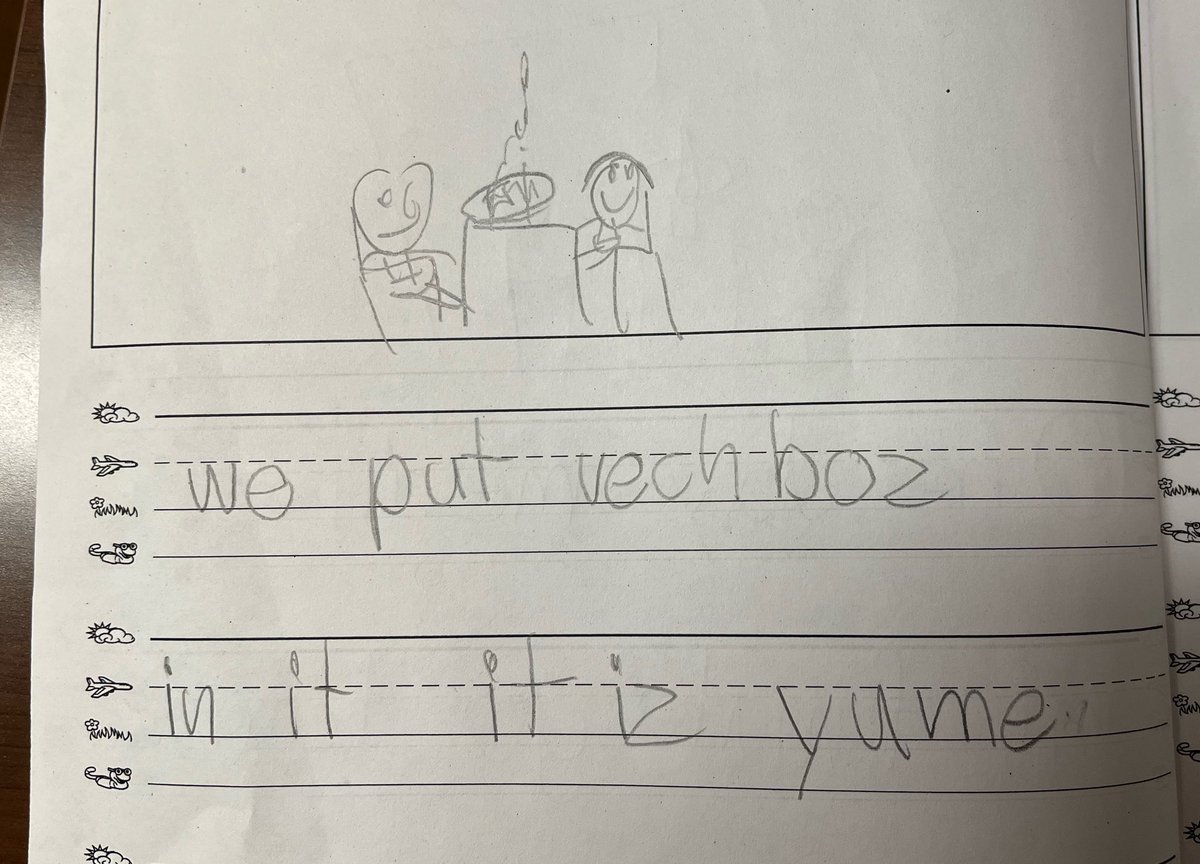 we put vechboz
in it it iz yume